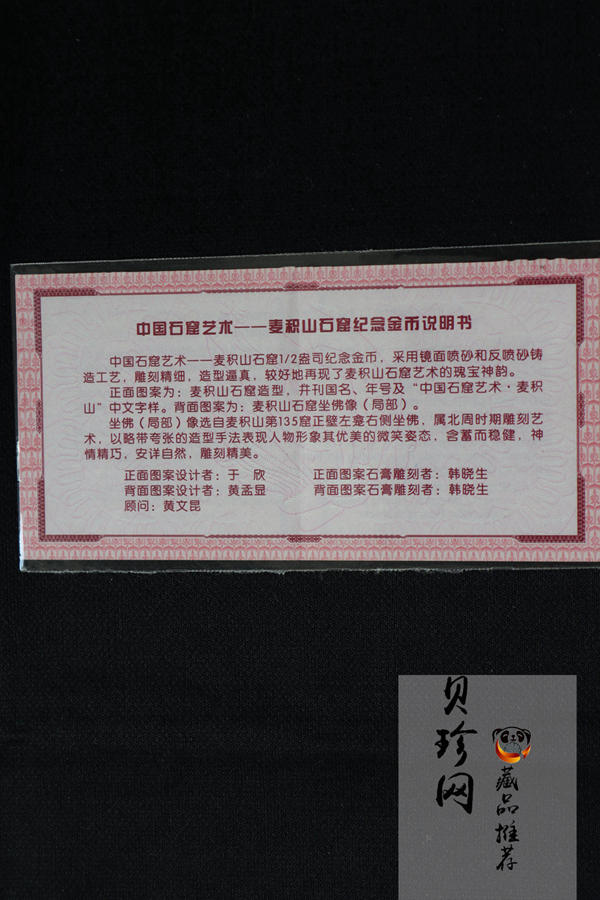 中国石窟艺术——麦积山石窟纪念金币说明书
中国石窟艺术——麦积山石窟1/2盎司纪念金币，采用镜面喷砂和反喷砂铸
造工艺，雕刻精细，造型逼真，较好地再现了麦积山石窟艺术的瑰宝神韵。
正面图案为：麦积山石窟造型，并刊国名、年号及“中国石窟艺术·麦积
山”中文字样。背面图案为：麦积山石窟坐佛像（局部）。
坐佛（局部）像选自麦积山第135窟正壁左龛右侧坐佛，属北周时期雕刻艺
术，以略带夸张的造型手法表现人物形象其优美的微笑姿态，含蓄而稳健，神
情精巧，安详自然，雕刻精美。
正面图案设计者：于　欣　　正面图案石膏雕刻者：韩晓生
背面图案设计者：黄孟显　　背面图案石膏雕刻者：韩晓生
顾问：黄文昆
贝珍网
藏品推荐